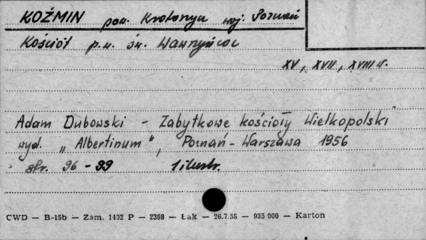 KOŹMIN pow. Krotoszyn woj. Poznań
Kościół p.w. św. Wawrzyńca
XV, XVII, XVIII w.
Adam Dubowski - Zabytkowe kościoły Wielkopolski"
wyd. „Albertinum", Poznań - Warszawa 1956
str. 96 - 99 1 ilustr.
CWD — B-15b — Zam. 1402 P — 2368 — Łak — 26.7.56 — 935 000 — Karton